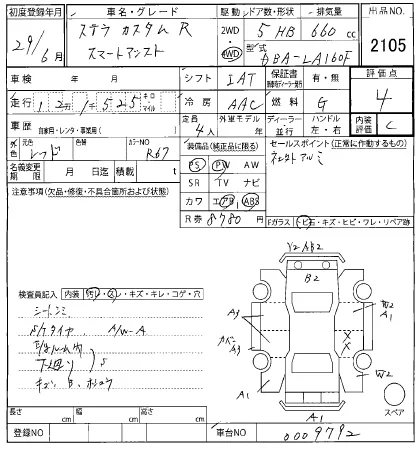 初度登録年月 車名・グレード 駆動 ドア数・形状 排気量 出品NO.
29年 6月 ステラ カスタム R 2WD 4WD 5 HB 660 cc 2105
スマートアシスト 型式 DBA-LA160F
車検 年 月 シフト IAT 保証書 有・無 評価点
走行 キロ マイル 冷房 AAC 燃料 G 4
車歴 自家用・レンタ・事業用( ) 定員 4人 外車モデル 年 ディーラー 並行 ハンドル 左・右 内装評価 C
外色 元色 レッド 色替 カラーNO R67 装備品(純正品に限る) セールスポイント(正常に作動するもの)
名義変更期限 月 日迄 積載 t PS PW AW
注意事項(欠品・修復・不具合箇所および状態) SR TV ナビ
カワ エアB ABS
R券 8780円 Fガラス(トビ石・キズ・ヒビ・ワレ・リペア跡)
Y2 AB2
B2
検査員記入 内装 汚レ・スレ・キズ・キレ・コゲ・穴
A3
A1
S/Tタイヤ A/W-A
A3
下廻り S
W2
A1
A1
スペア
長さ cm 幅 cm 高さ cm
登録NO 車台NO 0009792